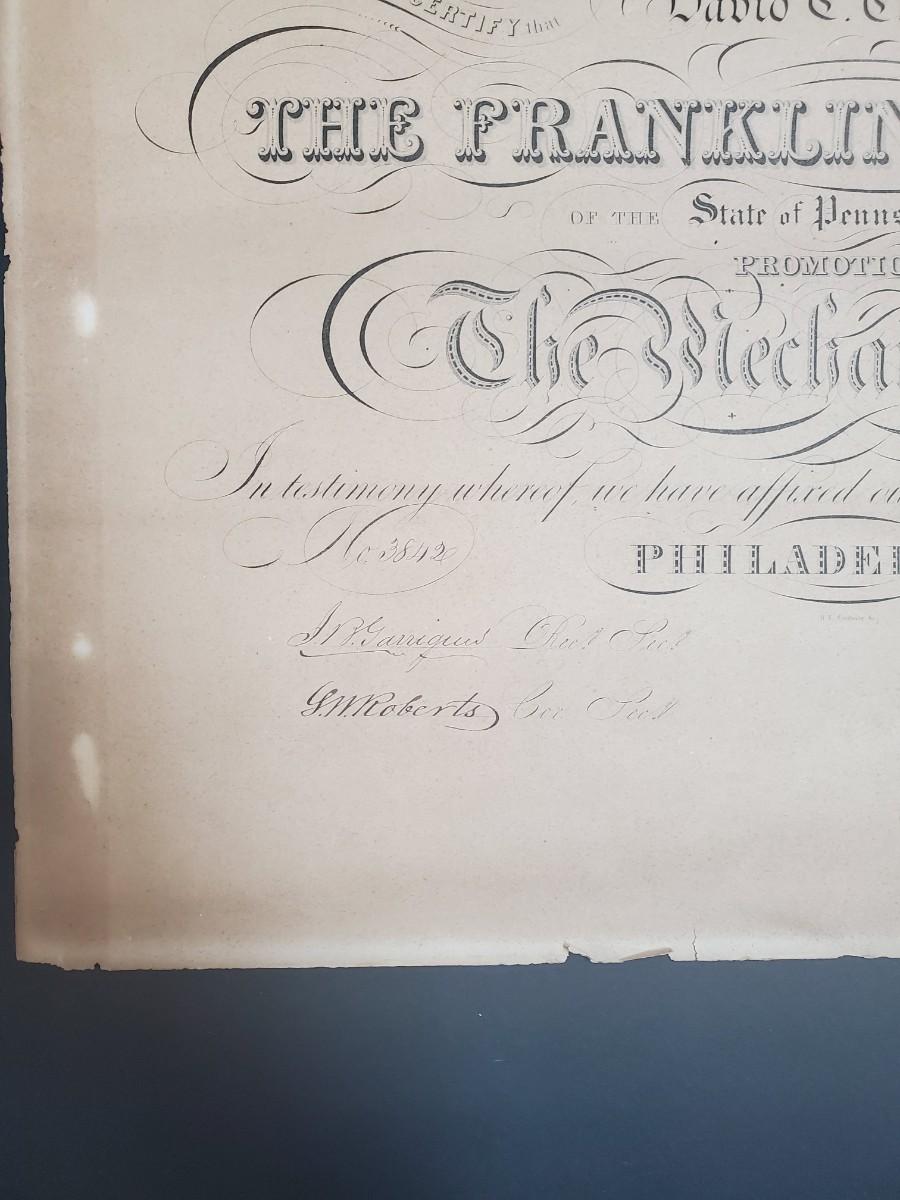 CERTIFY that
David C. C
THE FRANKLIN
OF THE State of Penns
PROMOTIO
The Mecha
In testimony whereof, we have affixed ou
No. 3842
PHILADEL
J. B. Garrigues Rec.g Sec.y
S.W. Roberts Cor. Sec.y